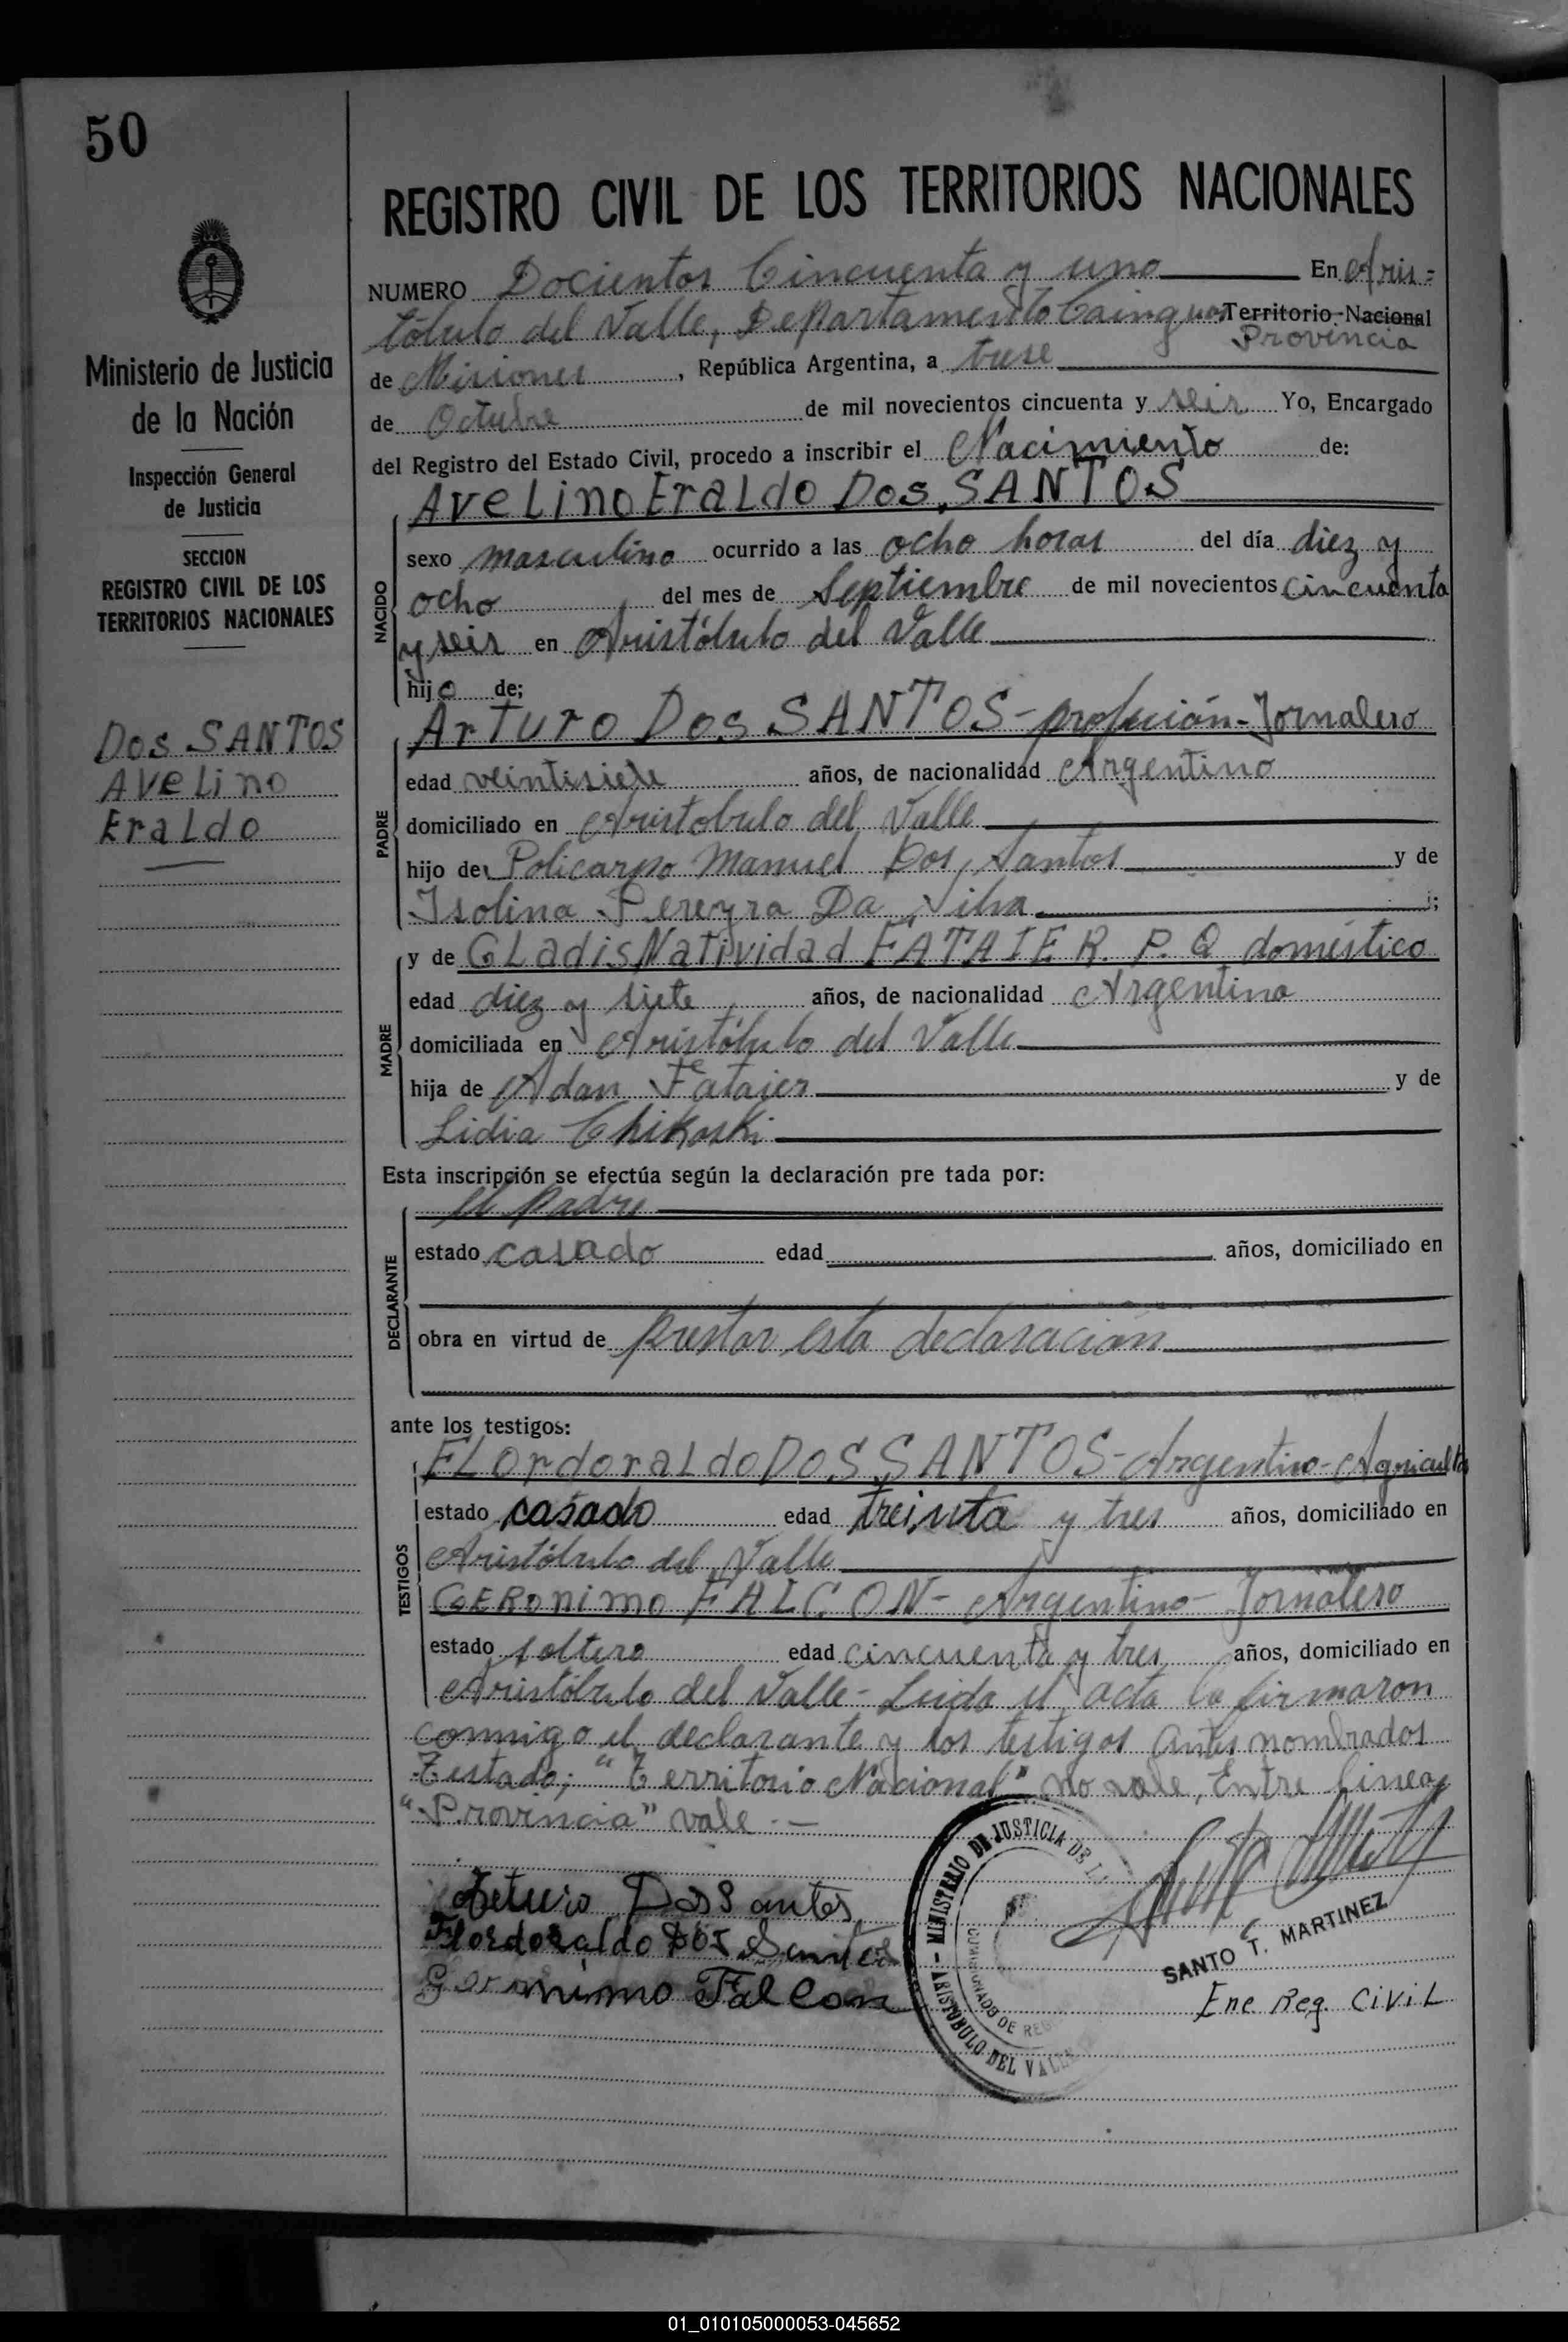 50
Ministerio de Justicia
de la Nación
Inspección General
de Justicia
SECCION
REGISTRO CIVIL DE LOS
TERRITORIOS NACIONALES
Dos SANTOS
AVeLino
EraLdo
REGISTRO CIVIL DE LOS TERRITORIOS NACIONALES
NUMERO Docientos Cincuenta y uno En Aris=
tóbulo del Valle, Departamento Cainguas Territorio Nacional
Provincia
de Misiones, República Argentina, a trese
de Octubre de mil novecientos cincuenta y seis Yo, Encargado
del Registro del Estado Civil, procedo a inscribir el Nacimiento de:
AveLino EraLdo Dos SANTOS
NACIDO
sexo masculino ocurrido a las ocho horas del día diez y
ocho del mes de Septiembre de mil novecientos cincuenta
y seis en Aristóbulo del Valle
hijo de;
ArTuro Dos SANTOS - profeción - Jornalero
PADRE
edad veintisiete años, de nacionalidad Argentino
domiciliado en Aristobulo del Valle
hijo de Policarpo Manuel Dos Santos y de
Isolina Pereyra Da Silva;
y de GLadis Natividad FATAIER. P. Q. doméstico
MADRE
edad diez y siete años, de nacionalidad Argentina
domiciliada en Aristóbulo del Valle
hija de Adan Fataier y de
Lidia Chikoski
Esta inscripción se efectúa según la declaración pre tada por:
el padre
DECLARANTE
estado casado edad años, domiciliado en
obra en virtud de prestar esta declaración
ante los testigos:
FLordoraLdo DoS SANTOS - Argentino - Agricultor
TESTIGOS
estado casado edad treinta y tres años, domiciliado en
Aristóbulo del Valle
GERONIMO FALCON - Argentino - Jornalero
estado soltero edad cincuenta y tres años, domiciliado en
Aristóbulo del Valle - Leida el acta la firmaron
conmigo el declarante y los testigos antes nombrados
Testado; "Territorio Nacional" no vale, Entre linea,
"Provincia" vale. —
Arturo Dos Santos
Flordoraldo Dos Santos
Geronimo Falcon
MINISTERIO DE JUSTICIA DE L
ARISTOBULO DEL VALLE
SANTO T. MARTINEZ
Enc Reg. CiviL
01_010105000053-045652